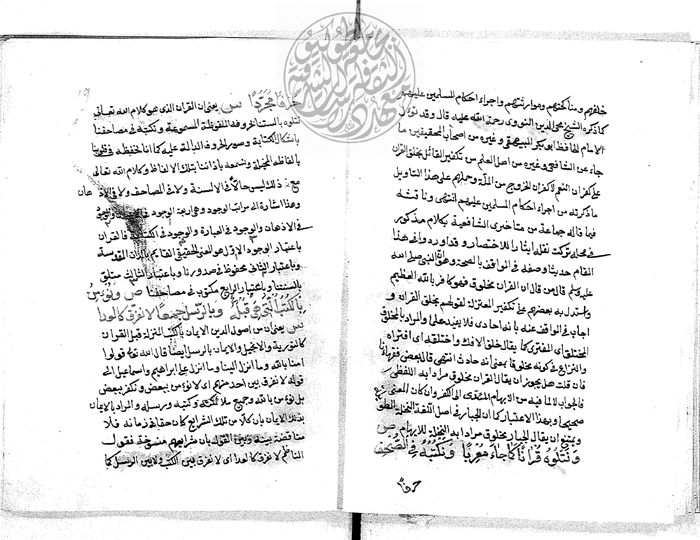 خلفهم ومناكحتهم وموارثتهم واجراء احكام المسلمين عليهم
كما ذكره الشيخ محيى الدين النووى رحمة الله عليه قال وقد نوول
الامام الحافظ ابو بكر البيهقى وغيره من اصحابنا المحققين ما
جاء عن الشافعى وغيره من اهل العلم من تكفير القائل بخلق القران
على كفران النعم لا كفران الخروج من الملة وحملهم على هذا التاويل
ما ذكرته من اجراء احكام المسلمين عليهم انتهى وناقشه
فيما قاله جماعة من متاخرى الشافعية بكلام مذكور
فى محله تركت نقله ايثارا للاختصار وقد اوردوا فى هذا
المقام حديثا وصفه فى المواقف بالصحة وهو ان النبى صلى الله
عليه وسلم قال من قال ان القران مخلوق فهو كافر بالله العظيم
واستدل به بعضهم على تكفير المعتزلة لقولهم بخلق القران و
اجاب فى المواقف عنه بانه احادى فلا يفيد علما والمراد بالمخلوق
المختلق اى المفترى كما يقال خلق الافك واختلقه اى افتراه
والنزاع فى كونه مخلوقا بمعنى انه حادث انتهى قال بعضهم
فان قلت هل يجوز ان يقال القران مخلوق مرادا به اللفظى
فالجواب لا لما فيه من الايهام المؤدى الى الكفر وان كان المعنى
صحيحا وبهذا الاعتبار كما ان الجبار فى اصل اللغة النخلة الطويلة
ويمتنع ان يقال الجبار مخلوق مرادا به النخلة للايهام ص
ونتلوه قرانا كما جاء معربا ونكتبه فى الصحف
حرفا مجردا س يعنى ان القران الذى هو كلام الله تعالى
نتلوه بالسنتنا بحروفه الملفوظة المسموعة ونكتبه فى مصاحفنا
باشكال الكتابة وصور الحروف الدالة عليه كما انا نحفظه فى قلوبنا
بالفاظه المخيلة ونسمعه باذاننا بتلك الالفاظ وكلام الله تعالى
مع ذلك ليس حالا فى الالسنة ولا فى المصاحف ولا فى الاذهان
وهذا اشارة الى مراتب الوجود وهى اربعة الوجود فى
فى الاذهان والوجود فى العبارة والوجود فى الكتابة فالقران
باعتبار الوجود الاول هو المعنى الحقيقى القائم بالذات المقدسة
وباعتبار الثانى محفوظ فى صدورنا وباعتبار الثالث متلو
بالسنتنا وباعتبار الرابع مكتوب فى مصاحفنا ص ونؤمن
بالكتب التى قبله وبالرسل جميعا لا نفرق كالعدا
س يعنى ان من اصول الدين الايمان بالكتب المنزلة قبل القران
كالتورية والانجيل والايمان بالرسل ايضا قال الله تعالى قولوا
امنا بالله وما انزل الينا وما انزل على ابراهيم واسماعيل الى
قوله لا نفرق بين احد منهم اى لا نؤمن ببعض ونكفر ببعض
بل نؤمن بالله وجميع ملائكته وكتبه ورسله والمراد بالايمان
بذلك الايمان بان كلا من تلك الشرائع كان حقا فى زمانه فلا
مناقضة بينه وبين القول بان شرائعهم منسوخة فقول
الناظم لا نفرق كالعدا اى لا نفرق بين الكتب ولا بين الرسل كما